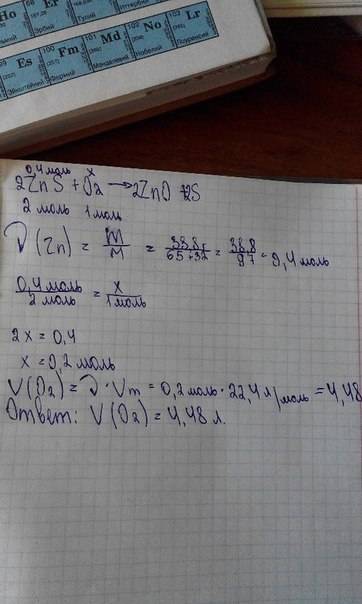 Ho 68 Er
Ербій
Es 100 Fm 101 Md 102 No 103 Lr
Ейнштейній Фермій Менделевій Нобелій Лоуренсій
0,4 моль x
2ZnS + O2 → 2ZnO + 2S
2 моль 1 моль
ν(Zn) = m/M = 38,8г/65+32 = 38,8/97 = 9,4 моль
0,4 моль/2 моль = x/1 моль
2x = 0,4
x = 0,2 моль
V(O2) = ν · Vm = 0,2 моль · 22,4 л/моль = 4,48
Ответ: V(O2) = 4,48 л.